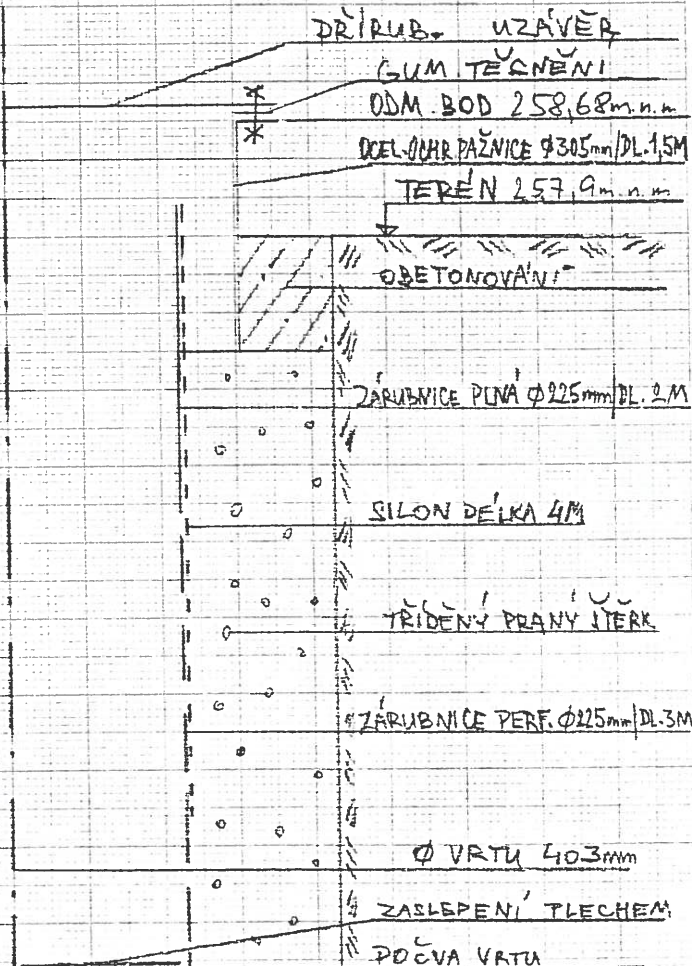 PŘÍRUB. UZÁVĚR
GUM TĚSNĚNÍ
ODM. BOD 258,68m.n.m
OCEL.OCHR PAŽNICE Ø305mm/DL.1,5M
TERÉN 257,9m.n.m
OBETONOVÁNÍ
ZÁRUBNICE PLNÁ Ø225mm/DL.2M
SILON DÉLKA 4M
TŘÍDĚNÝ PRANÝ ŠTĚRK
ZÁRUBNICE PERF. Ø225mm/DL.3M
Ø VRTU 403mm
ZASLEPENÍ PLECHEM
POČVA VRTU